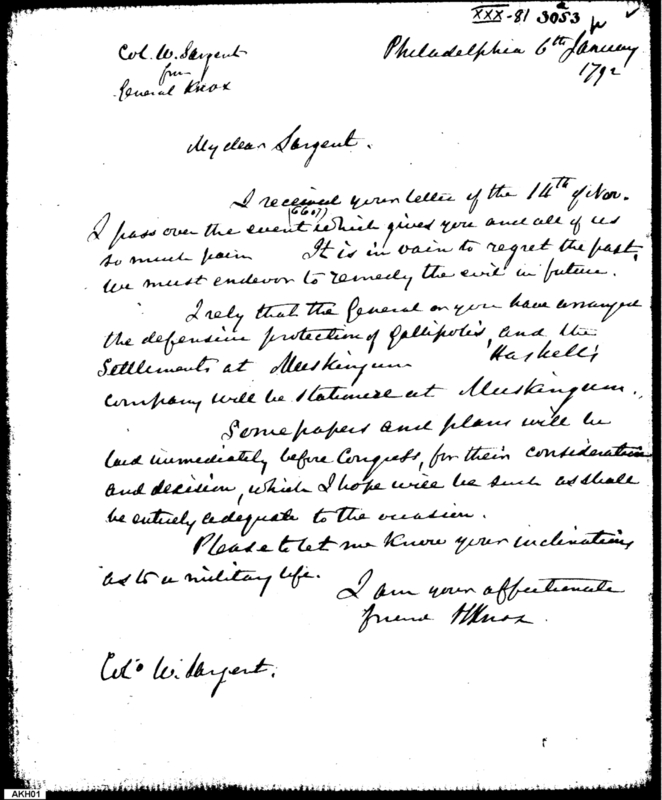 XXX-81 3053
Col. W. Sargent
from
General Knox
Philadelphia 6th January
1792
My dear Sargent.
I received your letter of the 14th of Nov.
(660?)
I pass over the event which gives you and all of us
so much pain It is in vain to regret the past,
we must endevor to remedy the evil in future.
I rely that the General or you have arranged
the defensive protection of Gallipolis, and the
Settlements at Muskingum Haskell's
company will be stationed at Muskingum.
Some papers and plans will be
laid immediately before Congress, for their consideration
and decision, which I hope will be such as shall
be entirely adequate to the occasion.
Please to let me know your inclinations
as to a military life.
I am your affectionate
friend HKnox.
Colo W. Sargent.
AKH01